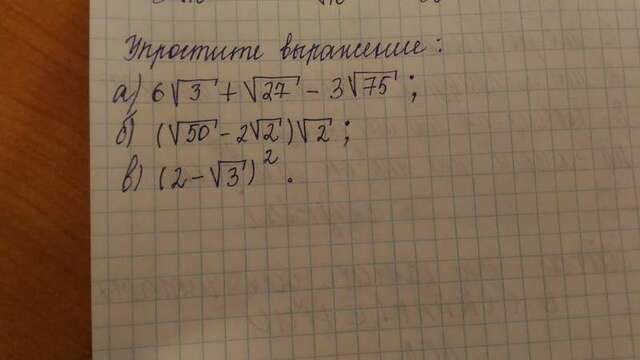 Упростите выражение:
а) 6√3 + √27 - 3√75;
б) (√50 - 2√2)√2;
в) (2 - √3)².